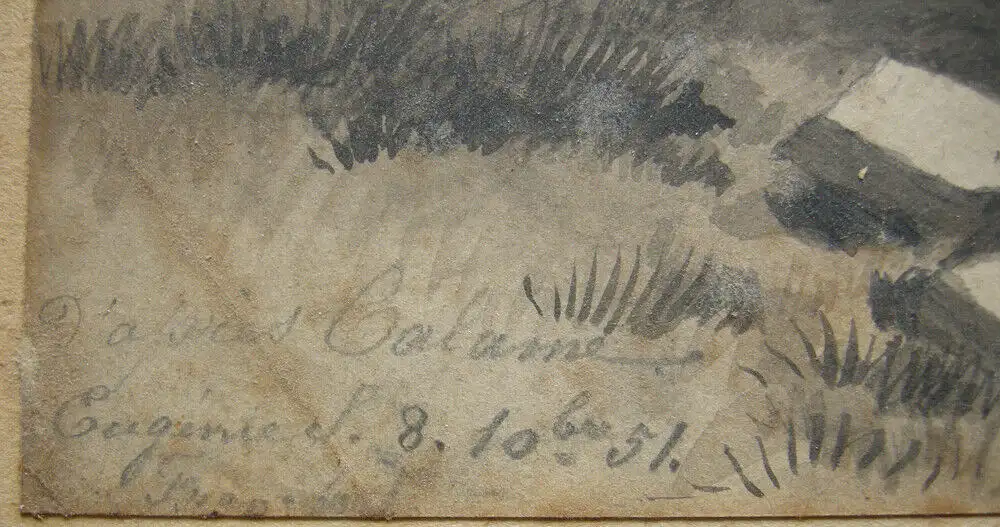 D'après Calame
Eugénie S. 8. 10bre 51.